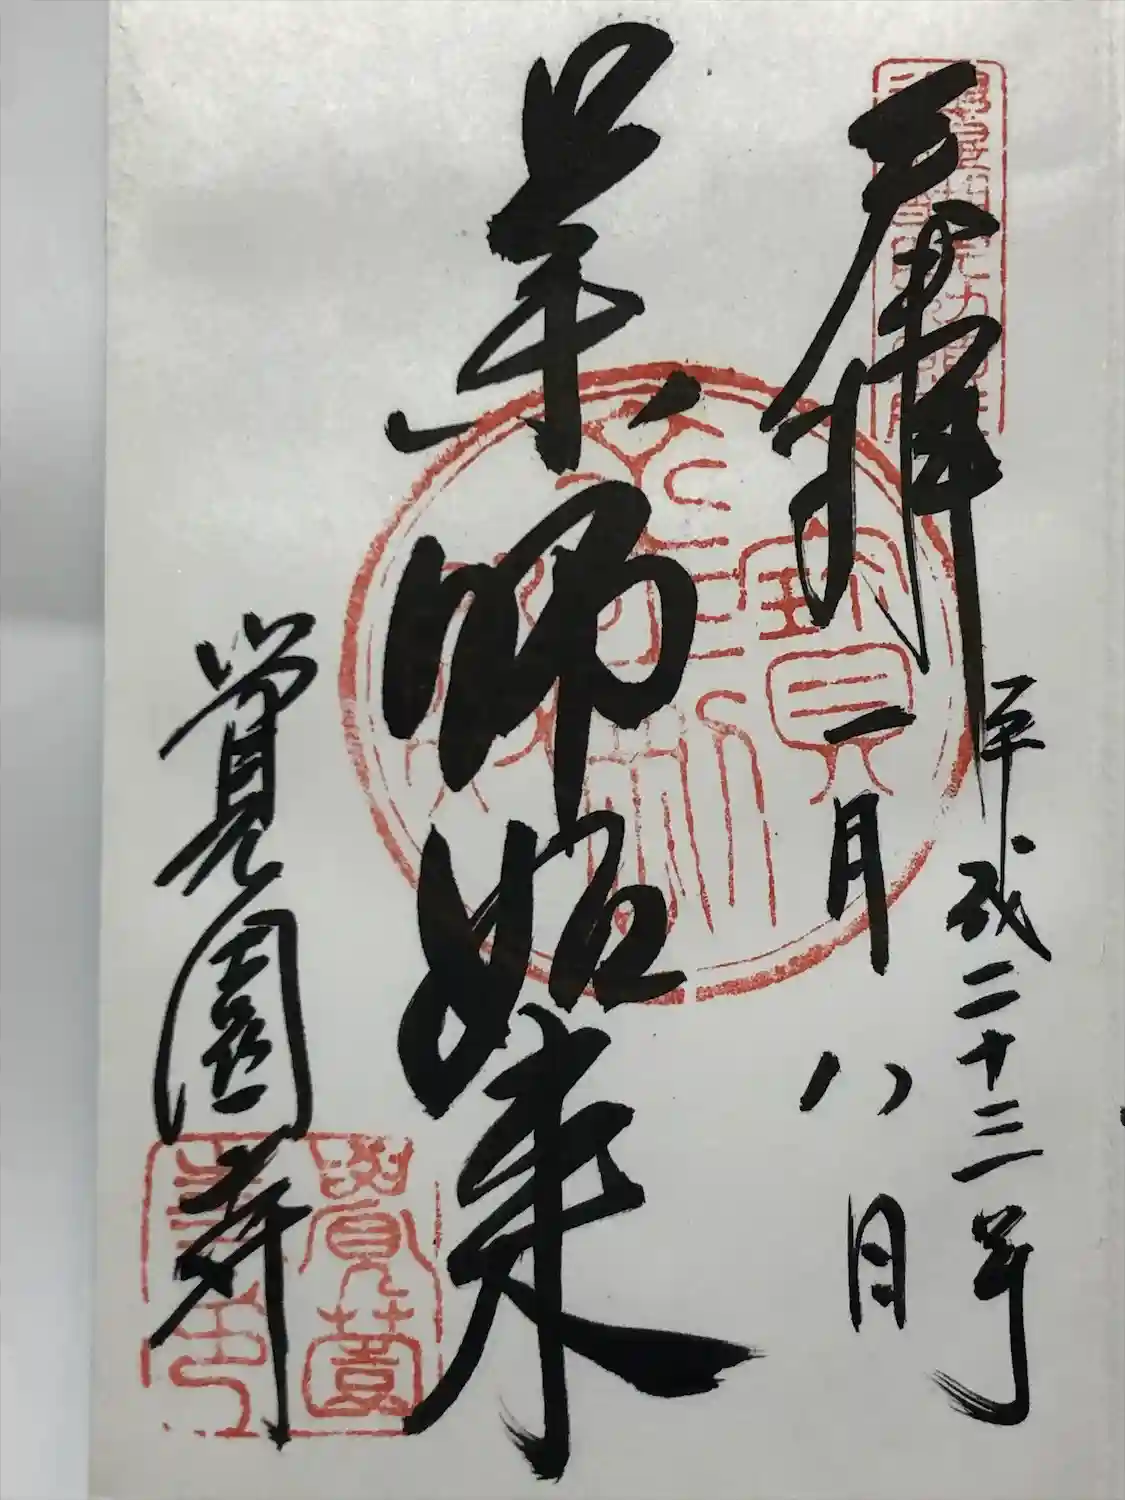 奉拝
平成二十三年
一月八日
薬師如来
覺園寺